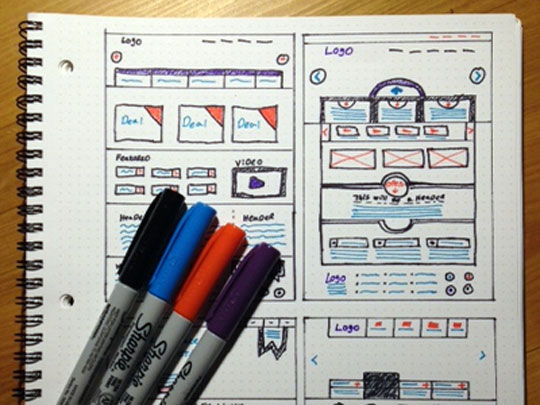 LOGO
Deal
Deal
Deal
FEATURED
VIDEO
HEADER
HEADER
LOGO
THIS WILL BE A HEADER
Logo
LOGO
Sharpie
Sharpie